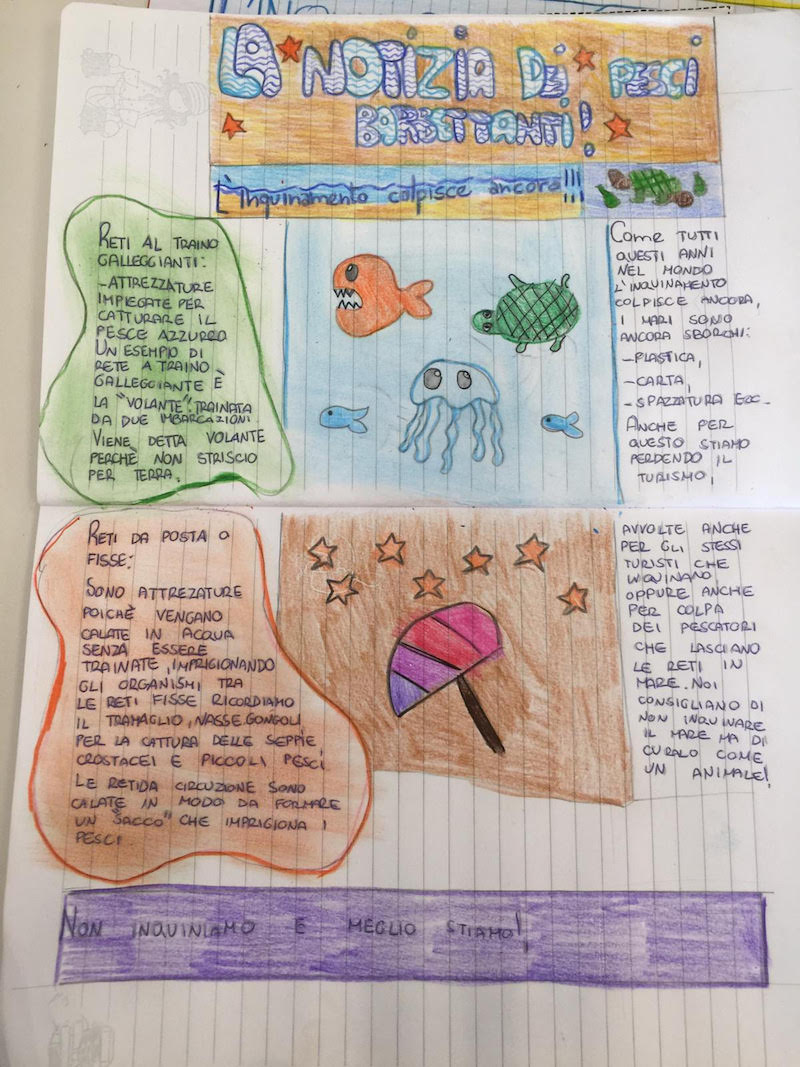 LA NOTIZIA DEI PESCI
BARSETTANTI!
L'inquinamento colpisce ancora!!!
RETI AL TRAINO
GALLEGGIANTI:
-ATTREZZATURE
IMPIEGATE PER
CATTURARE IL
PESCE AZZURRO
UN ESEMPIO DI
RETE A TRAINO
GALLEGGIANTE È
LA "VOLANTE". TRAINATA
DA DUE IMBARCAZIONI
VIENE DETTA VOLANTE
PERCHÈ NON STRISCIO
PER TERRA.
COME TUTTI
QUESTI ANNI
NEL MONDO
L'INQUINAMENTO
COLPISCE ANCORA,
I MARI SONO
ANCORA SBORCHI:
-PLASTICA,
-CARTA,
-SPAZZATURA ECC-
ANCHE PER
QUESTO STIAMO
PERDENDO IL
TURISMO,
RETI DA POSTA O
FISSE:
SONO ATTREZATURE
POICHÈ VENGANO
CALATE IN ACQUA
SENZA ESSERE
TRAINATE, IMPRIGIONANDO
GLI ORGANISMI TRA
LE RETI FISSE RICORDIAMO
IL TRAMAGLIO, NASSE. GONGOLI
PER LA CATTURA DELLE SEPPIE
CROSTACEI E PICCOLI PESCI
LE RETIDA CIRCUZIONE SONO
CALATE IN MODO DA FORMARE
UN "SACCO" CHE IMPRIGIONA I
PESCI
AVVOLTE ANCHE
PER GLI STESSI
TURISTI CHE
INQUINANO
OPPURE ANCHE
PER COLPA
DEI PESCATORI
CHE LASCIANO
LE RETI IN
MARE. NOI
CONSIGLIANO DI
NON INQUINARE
IL MARE MA DI
CURALO COME
UN ANIMALE!
NON INQUINIAMO E MEGLIO STIAMO!